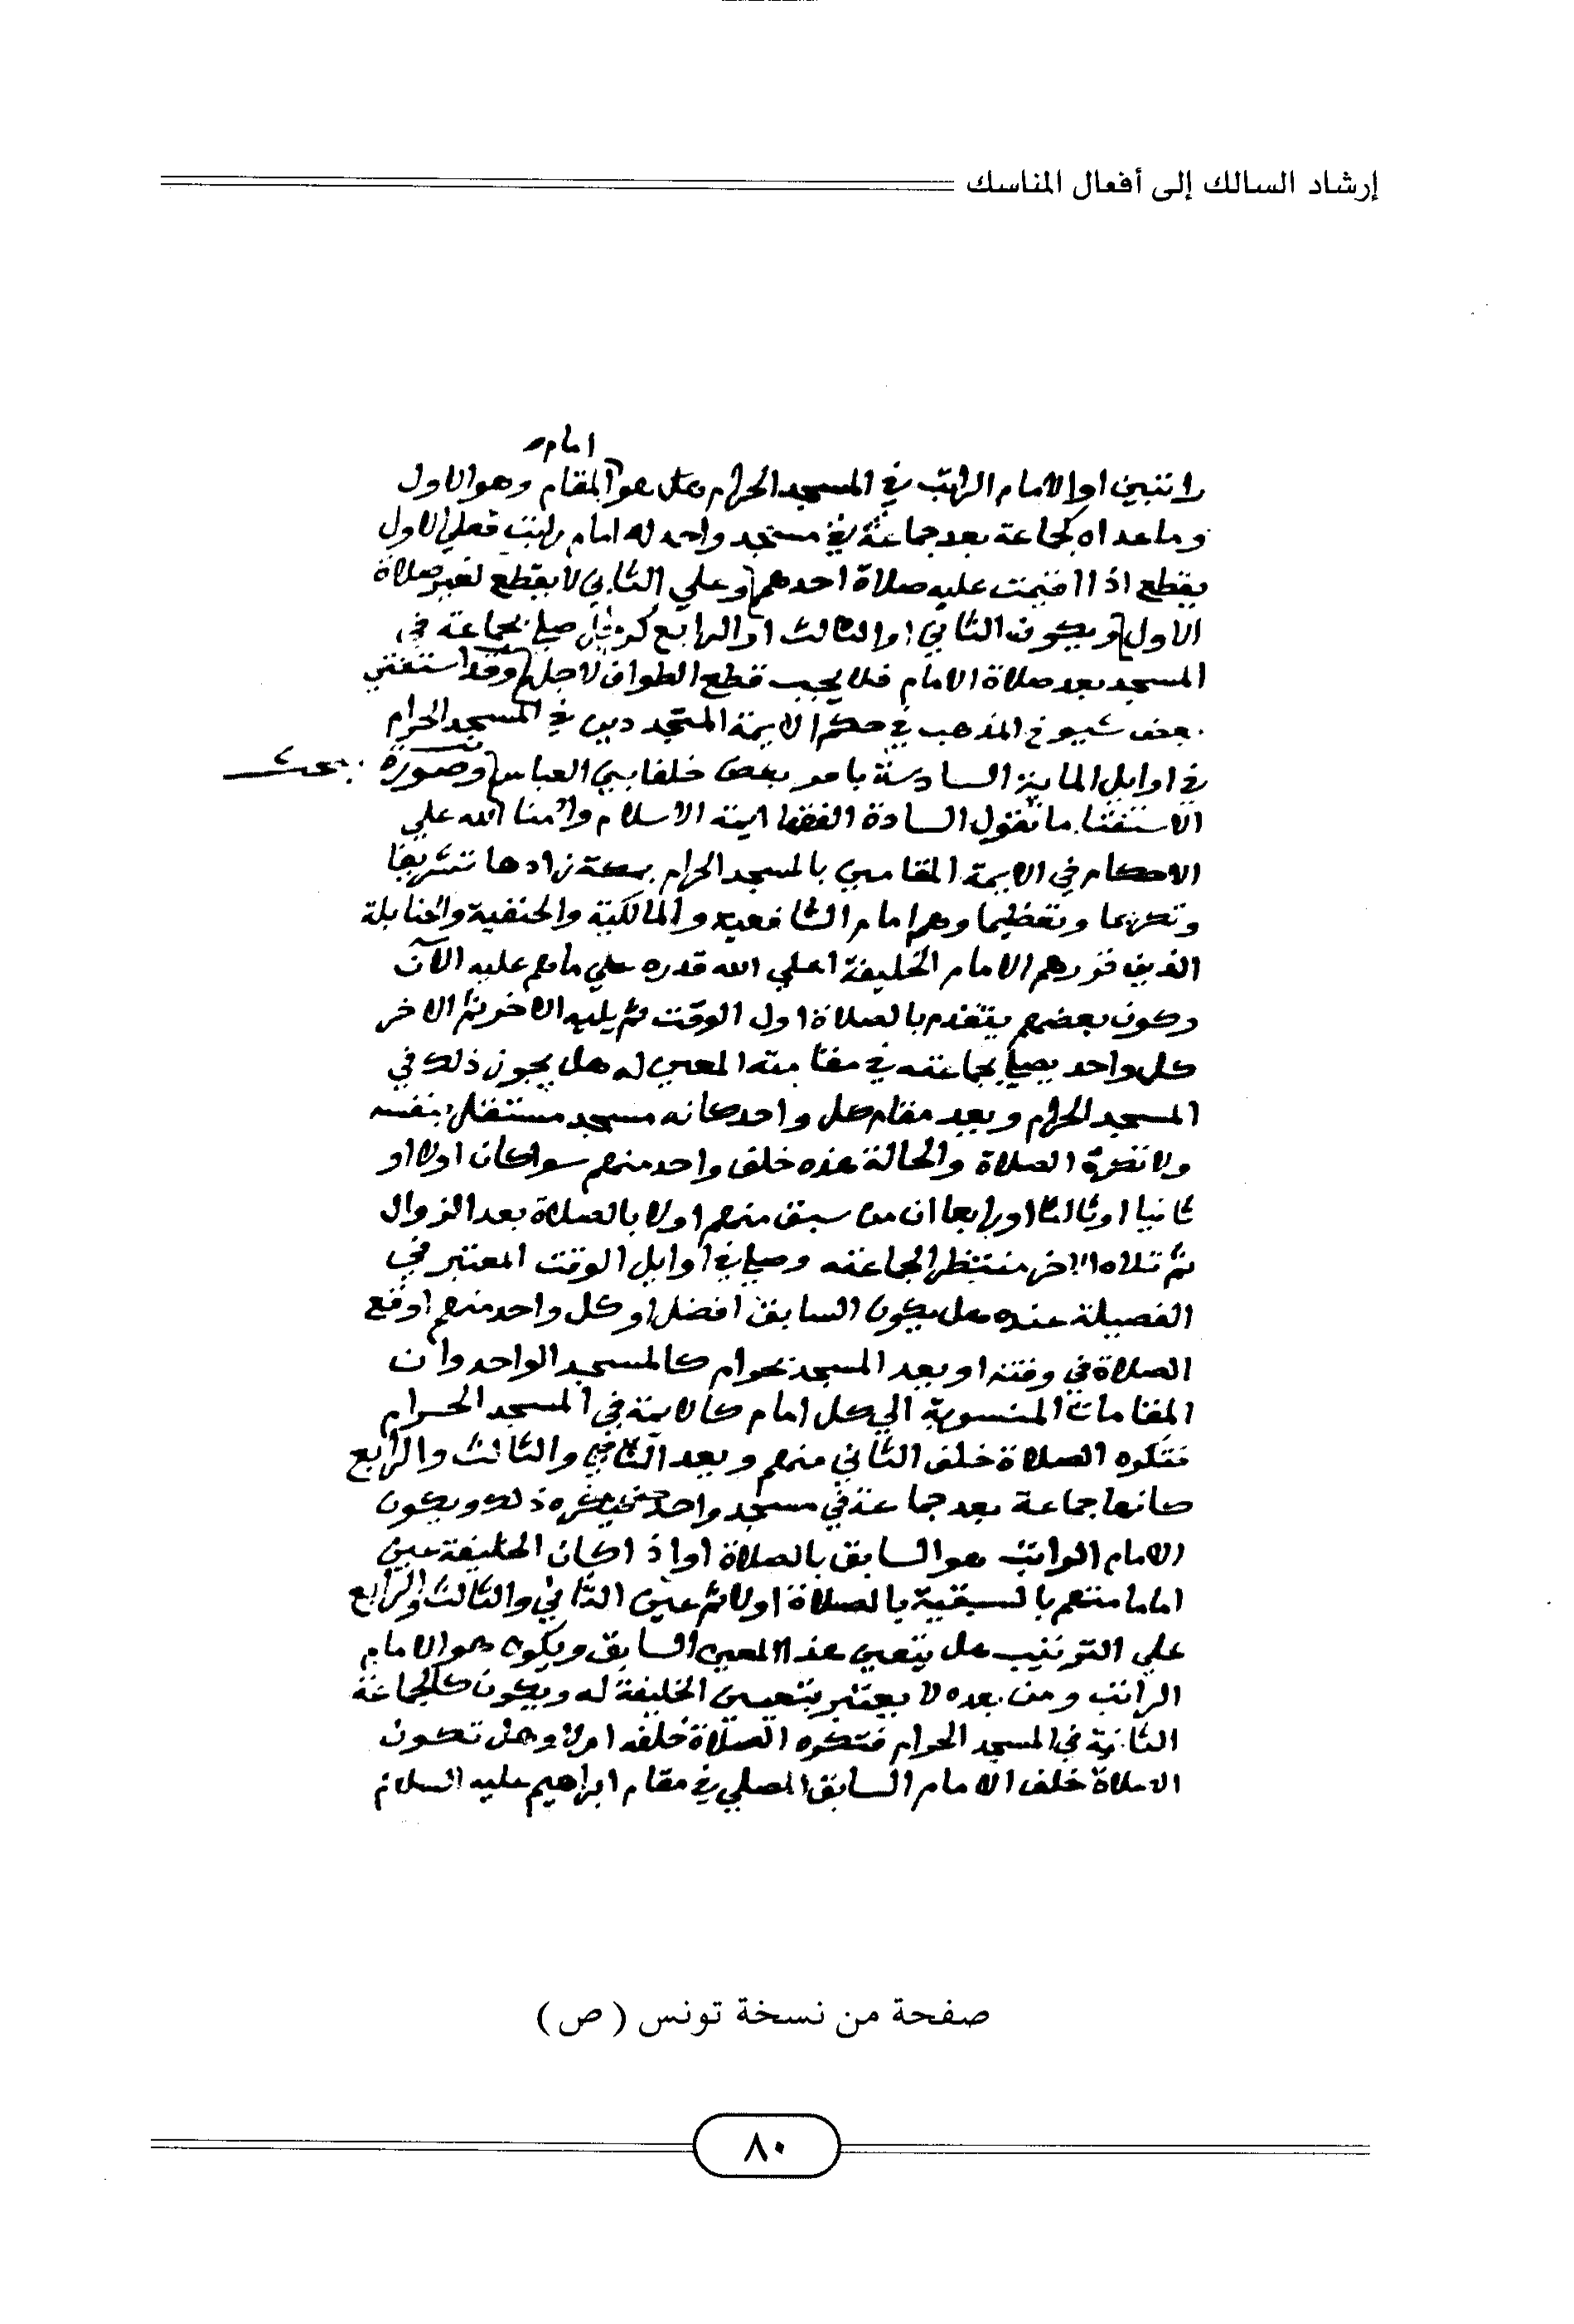 إرشاد السالك إلى أفعال المناسك
امام
راتبين او الامام الراتب في المسجد الحرام هل هو المقام وهو الاول
وما عداه كجماعة بعد جماعة في مسجد واحد له امام راتب فعلي الاول
يقطع اذا اقيمت عليه صلاة احدهم وعلي الثاني لا يقطع لغير صلاة
الاول ويكون الثاني او الثالث او الرابع كرجل صلي بجماعة في
المسجد بعد صلاة الامام فلا يجب قطع الطواف لاجلهم وقد استفتي
بعض شيوخ المذهب في حكم الايمة المتجددين في المسجد الحرام
في اوايل الماية السادسة بامر بعض خلفا بني العباس وصورة
بحث
الاستفتا ما تقول السادة الفقها ايمة الاسلام وامنا الله علي
الاحكام في الايمة المقامين بالمسجد الحرام بمكة زادها تشريفا
وتكريما وتعظيما وهم امام الشافعية والمالكية والحنفية والحنابلة
الذين قررهم الامام الخليفة اعلي الله قدره علي ما هم عليه الآن
وكون بعضهم يتقدم بالصلاة اول الوقت ثم يليه الاخر ثم الاخر
كل واحد يصلي بجماعته في مقامته المعين له هل يجوز ذلك في
المسجد الحرام ويعد مقام كل واحد كانه مسجد مستقل بنفسه
ولا تكره الصلاة والحالة هذه خلف واحد منهم سوا كان اولا او
ثانيا او ثالثا او رابعا ان من سبق منهم اولا بالصلاة بعد الزوال
ثم تلاه الاخر منتظرا لجماعته وصلي في اوايل الوقت المعتبر في
الفضيلة عنده هل يكون السابق افضل او كل واحد منهم اوقع
الصلاة في وقته او يعد المسجد الحرام كالمسجد الواحد وان
المقامات المنسوبة الي كل امام كالايمة في المسجد الحرام
فتكره الصلاة خلف الثاني منهم ويعد الثاني والثالث والرابع
كانها جماعة بعد جماعة في مسجد واحد ذلك ويكون
الامام الراتب هو السابق بالصلاة او اذا كان الخليفة عين
اماما منهم بالسبقية بالصلاة اولا ثم عين الثاني والثالث والرابع
علي الترتيب هل يتعين هذا المعين السابق ويكون هو الامام
الراتب ومن بعده لا يعتبر بتعيين الخليفة له ويكون كالجماعة
الثانية في المسجد الحرام فتكره الصلاة خلفه ام لا وهل تكون
الصلاة خلف الامام السابق المصلي في مقام ابراهيم عليه السلام
صفحة من نسخة تونس ( ص )
٨٠